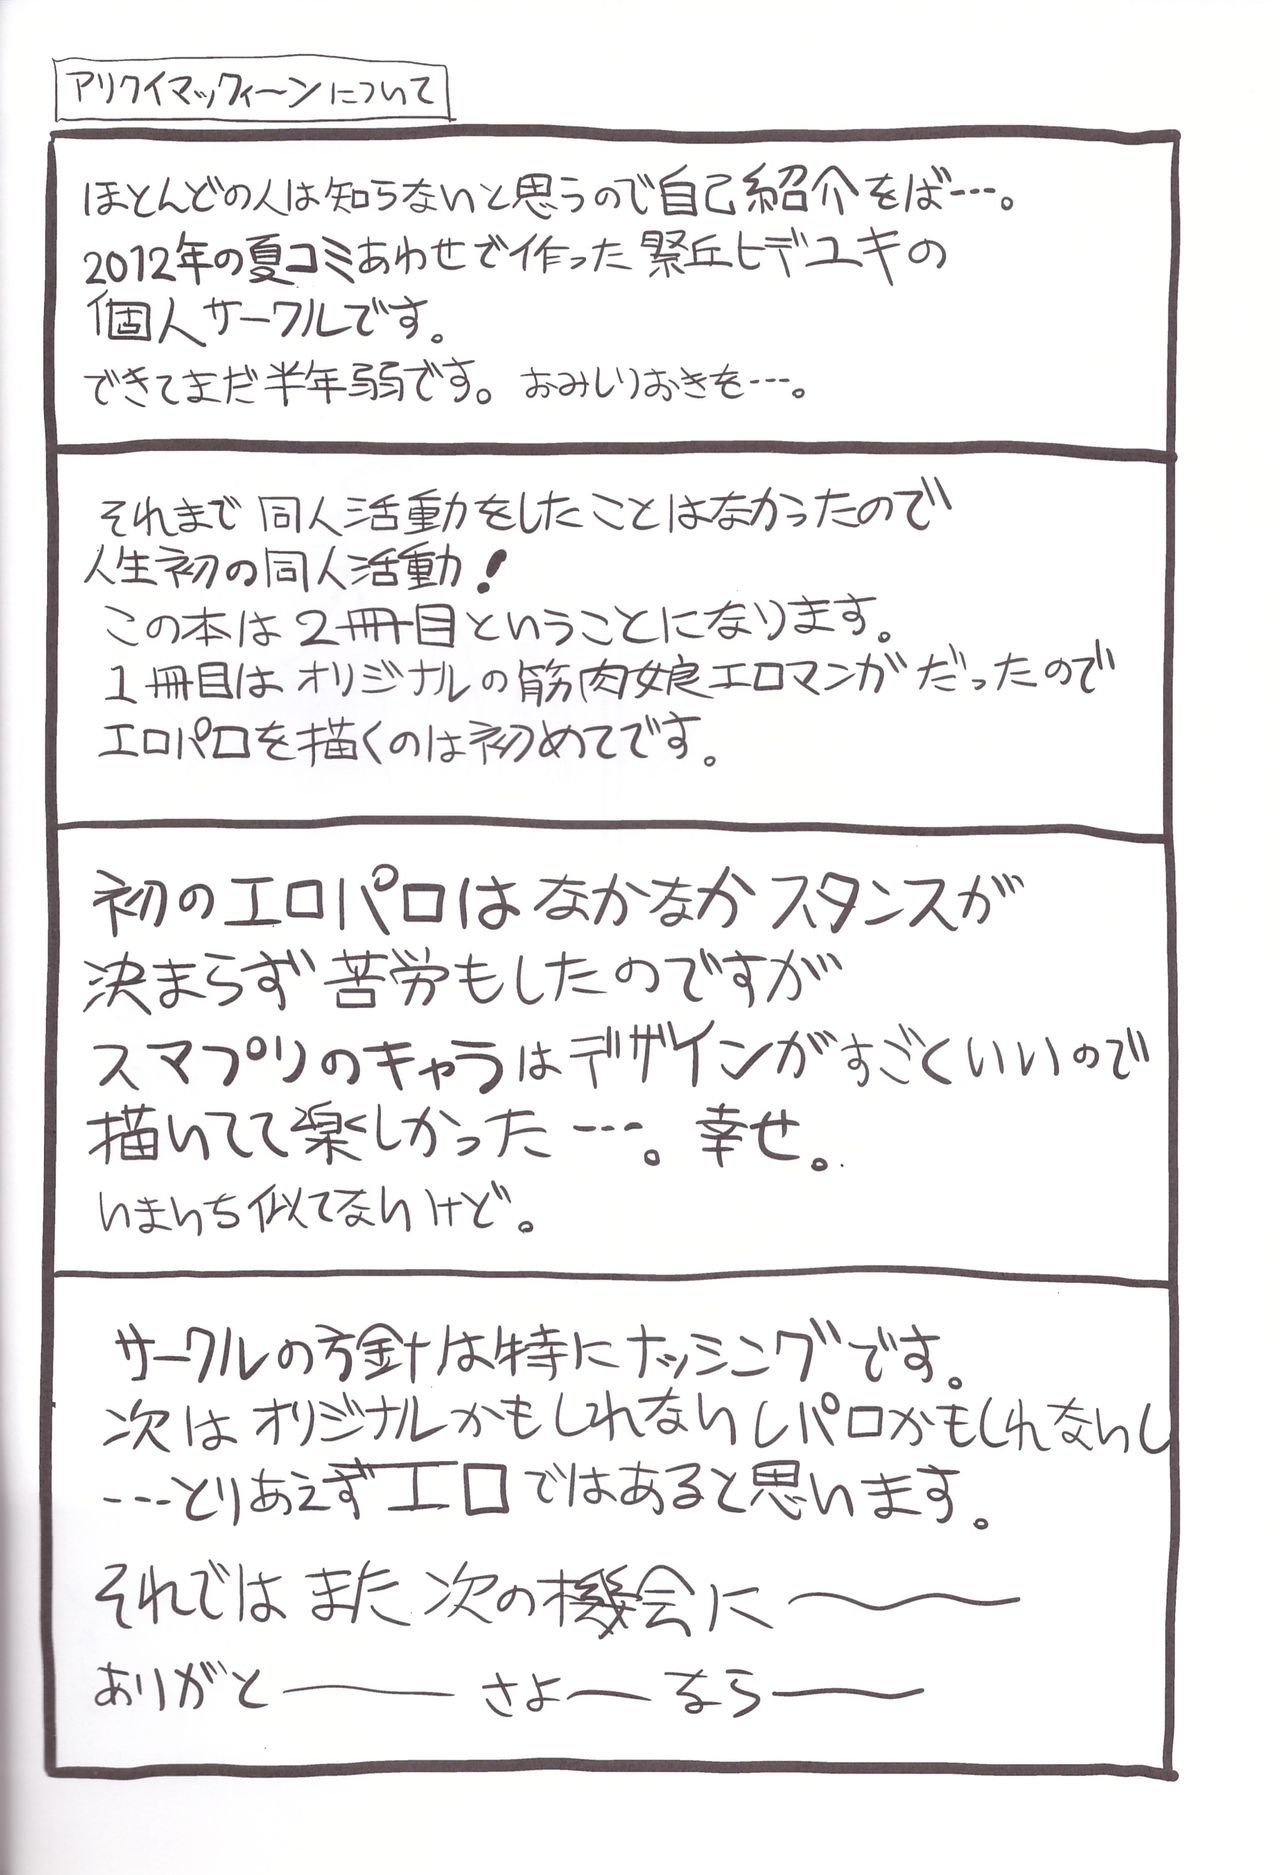 アリクイマックィーンについて
ほとんどの人は知らないと思うので自己紹介をば…。
2012年の夏コミあわせで作った 丘ヒデユキの
個人サークルです。
できてまだ半年弱です。おみしりおきを…。
それまで同人活動をしたことはなかったので
人生初の同人活動!
この本は2冊目ということになります。
1冊目はオリジナルの筋肉娘エロマンガだったので
エロパロを描くのは初めてです。
初のエロパロはなかなかスタンスが
決まらず苦労もしたのですが
スマプリのキャラはデザインがすごくいいので
描いてて楽しかった…。幸せ。
いまいち似てないけど。
サークルの方針は特にナッシングです。
次はオリジナルかもしれないしパロかもしれないし
…とりあえずエロではあると思います。
それではまた次の機会に〜
ありがとーさよーならー